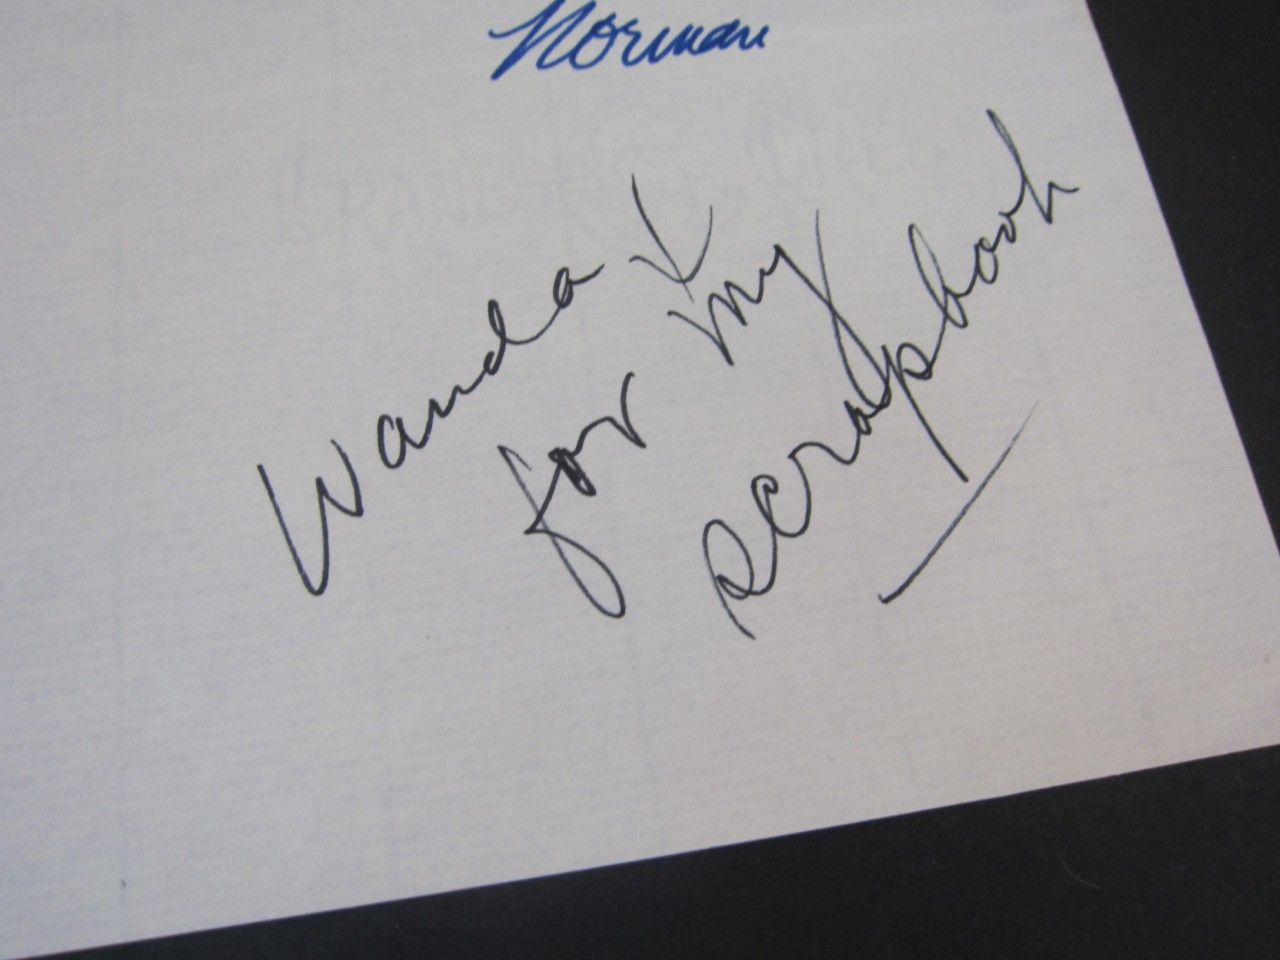 Norman
Wanda
for my
scrapbook